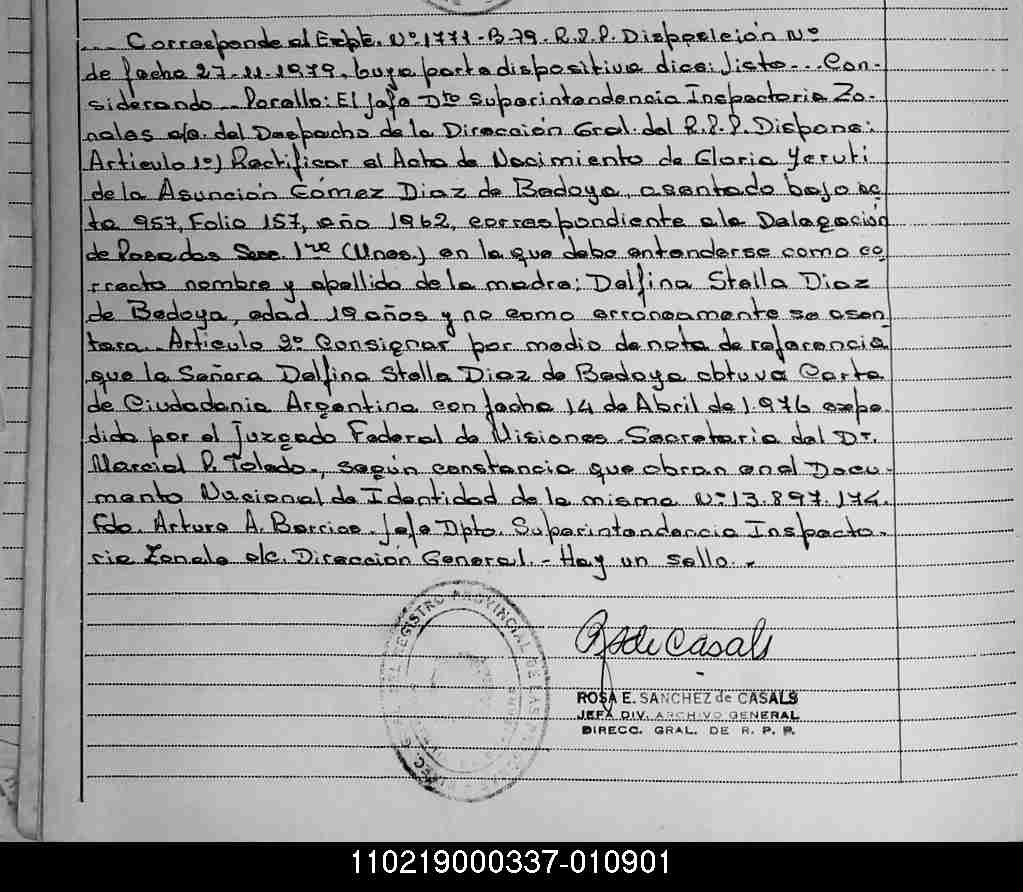 ... Corresponde al Expte. Nº 1771-B-79-R.P.P. Disposición Nº
de fecha 27-11-1979, cuya parte dispositiva dice: Visto... Con-
siderando... Por ello: El Jefe Dto Superintendencia Inspectoria Zo-
nales a/c. del Despacho de la Dirección Gral. del R.P.P. Dispone:
Articulo 1º) Rectificar el Acta de Nacimiento de Gloria Yeruti
de la Asunción Gómez Diaz de Bedoya, asentado bajo ac
ta 957, Folio 157, año 1962, correspondiente a la Delegación
de Posadas Secc. 1ra (Unos) en la que debe entenderse como co-
rrecto nombre y apellido de la madre: Delfina Stella Diaz
de Bedoya, edad 19 años y no como erroneamente se asen
tara. Articulo 2º Consignar por medio de nota de referencia
que la Señora Delfina Stella Diaz de Bedoya obtuvo Carta
de Ciudadania Argentina con fecha 14 de Abril de 1.976 expe
dida por el Juzgado Federal de Misiones. Secretaria del Dr.
Marcial P. Toledo, según constancia que obran en el Docu-
mento Nacional de Identidad de la misma Nº 13.897.174.
Fdo. Arturo A. Barrios. Jefe Dpto. Superintendencia Inspecto-
ria Zonale a/c. Dirección General. - Hay un sello. -
REGISTRO PROVINCIAL DE LAS
R S de Casals
ROSA E. SANCHEZ de CASALS
JEFA DIV. ARCHIVO GENERAL
DIRECC. GRAL. DE R. P. P.
110219000337-010901